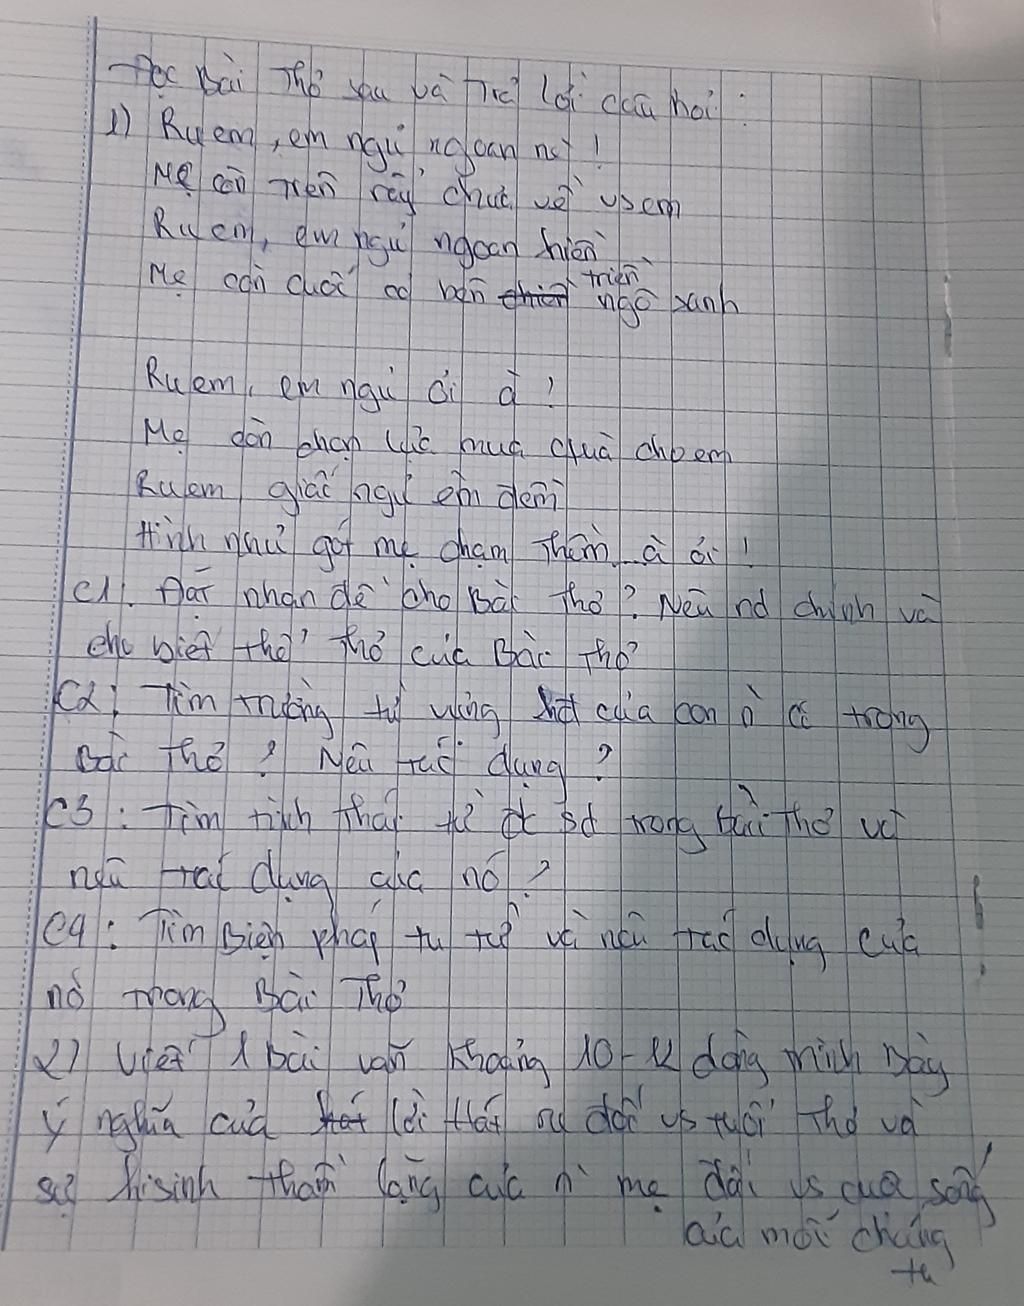 Đọc Bài Thơ sau và Trả lời câu hỏi :
1) Ru em, em ngủ ngoan nè !
Mẹ còn trên rẫy chưa về vs em
Ru em, em ngủ ngoan hiền
Mẹ còn cuốc cỏ bên triền ngô xanh
Ru em, em ngủ ời à !
Mẹ còn chọn lúc mua quà cho em
Ru em giấc ngủ êm đềm
Hình như gót mẹ chạm Thềm... à ới !
C1. Đặt nhan đề cho Bài Thơ ? Nêu nd chính và
cho biết thể thơ của Bài Thơ
C2: Tìm trường từ vựng của con ò có trong
Bài Thơ ? Nêu tác dụng ?
C3 : Tìm tình thái từ đc sd trong bài thơ và
nêu tác dụng của nó ?
C4 : Tìm Biện pháp tu từ và nêu tác dụng của
nó trong Bài Thơ
2) Viết 1 bài văn khoảng 10-12 dòng trình bày
ý nghĩa của lời hát ru đối vs tuổi thơ và
sự hi sinh thầm lặng của n mẹ đối vs cuộc sống
của mỗi chúng
ta